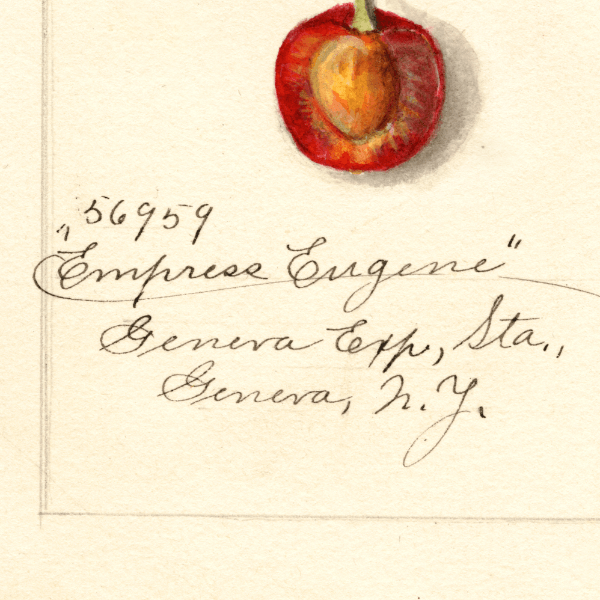 56959
"Empress Eugene"
Geneva Exp, Sta.,
Geneva, N.Y.